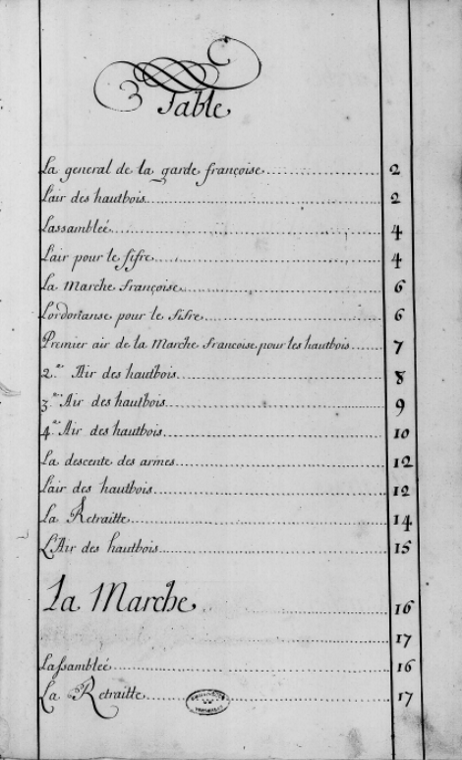 Table
La general de la garde françoise 2
L'air des hautbois 2
Lassambleé 4
L'air pour le fifre 4
La Marche françoise 6
Lordonanse pour le fifre 6
Premier air de la Marche francoise pour les hautbois 7
2.e Air des hautbois 8
3.e Air des hautbois 9
4.e Air des hautbois 10
La descente des armes 12
L'air des hautbois 12
La Retraitte 14
L'Air des hautbois 15
La Marche 16
17
Lassambleé 16
La Retraitte 17